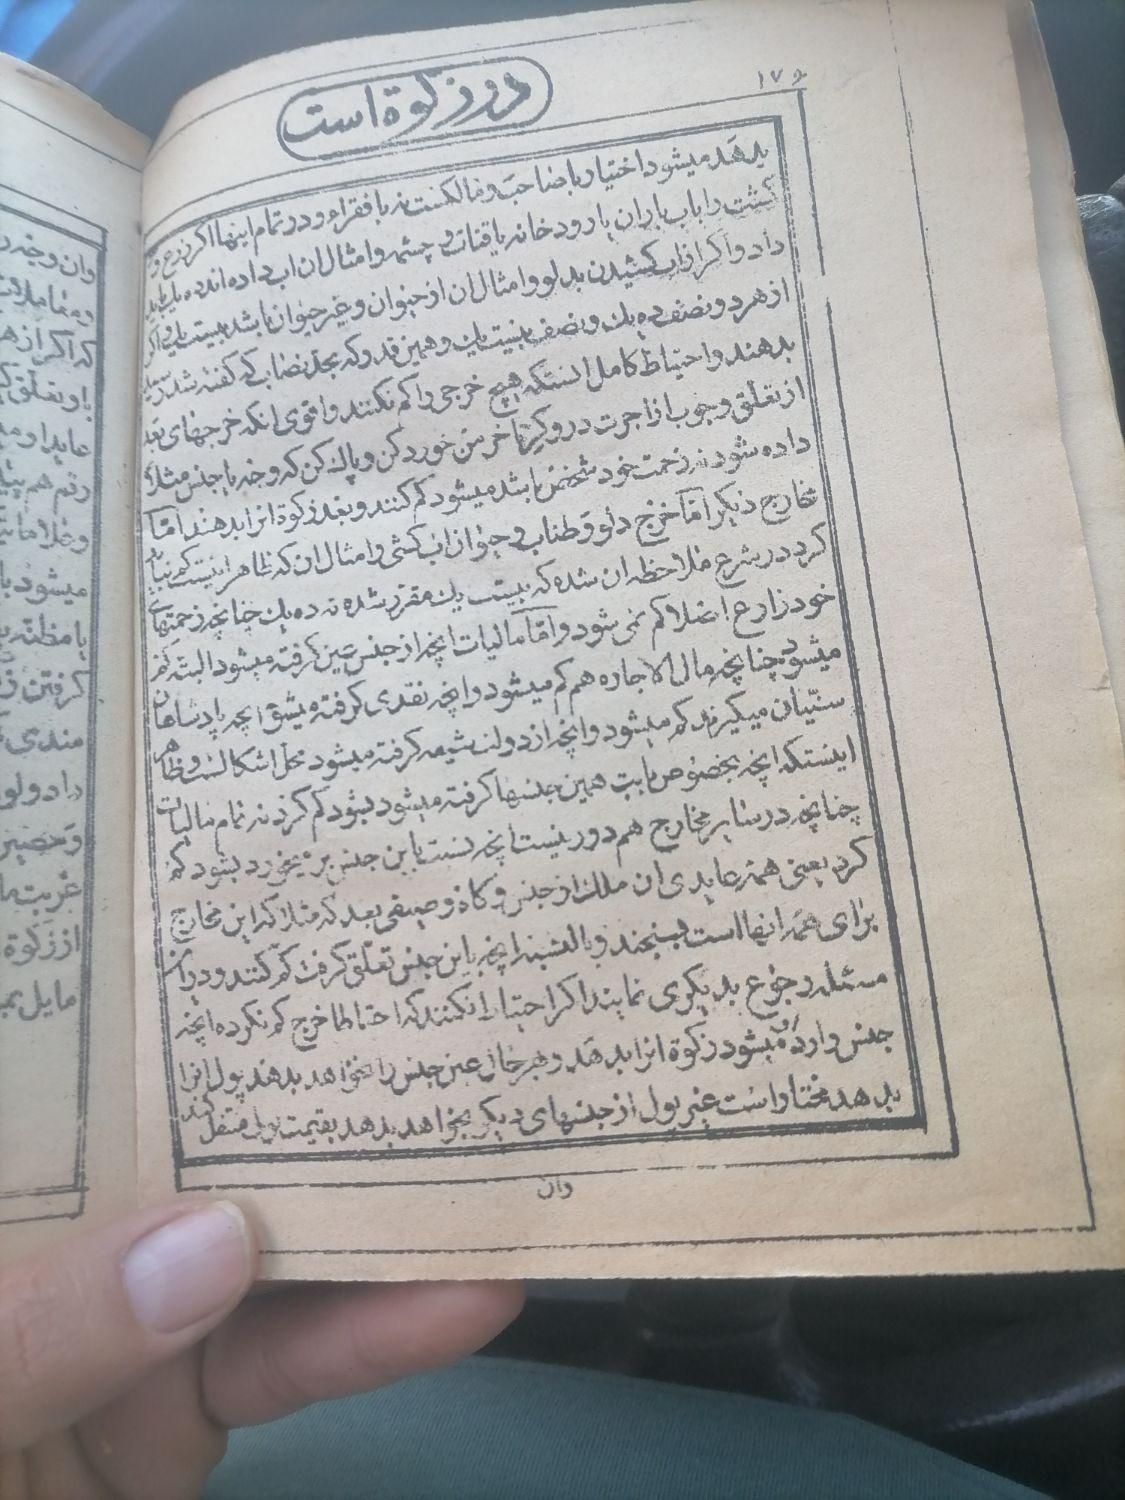 در زکوة است
۱۷۵
بدهد میشود اختیار با صاحب و مالکست نه با فقراء و در تمام اینها اگر زرع و
کشت را باب باران یا رودخانه یا قنات و چشمه و امثال ان اب داده اند ده یک باید
داد و اگر از اب کشیدن بدلو و امثال ان از حیوان و غیر حیوان باشد بیست یک و اگر
از هر دو نصف ده یک و نصف بیست یک و همین قدر که بحد نصاب که گفته شد رسید
بدهند و احتیاط کامل انستکه هیچ خرجی را کم نکنند و اقوی انکه خرجهای بعد
از تعلق وجوب از اجرت درو گر تا خرمن خورد کن و پاک کن که وجه یا جنس مثلا
داده شود نه زحمت خود شخص باشد میشود کم کنند و بعد زکوة انرا بدهند اما
مخارج دیگر اما خرج دلو و طناب و حیوان اب کشی و امثال ان که ظاهرا نیست کم نباید
کرد در شرح ملاحظه ان شده که بیست یک مقرر شده نه ده یک چنانچه زحمتهای
خود زارع اصلا کم نمی شود و اما مالیات انچه از جنس عین گرفته میشود البته کم
میشود چنانچه مال الاجاره هم کم میشود و انچه نقدی گرفته میشود انچه پادشاهان
سنیان میگیرند کم میشود و انچه از دولت شیعه گرفته میشود محل اشکالست و ظاهر
اینستکه انچه بخصوص بابت همین جنسها گرفته میشود بشود کم کرد نه تمام مالیات
چنانچه در سایر مخارج هم دور نیست انچه نسبت باین جنس بر میخورد بشود کم
کرد یعنی همه عایدی ان ملک از جنس و کاه و صیفی بعد که مثلا که این مخارج
برای همه انها است بسنجند و بالنسبه انچه باین جنس تعلق گرفت کم کنند و در این
مسئله رجوع بدیگری نمایند اگر احتیاط نکنند که احتیاطا خرج کم نکرده انچه
جنس دارد میشود زکوة انرا بدهد و هر حال عین جنس را نخواهد بدهد پول انرا
بدهد مختار است غیر پول از جنسهای دیگر بخواهد بدهد بقیمت پول منتقل کند
وان
وان وجه ر
که اگر از ه
با و تعلق
میشود با
گرفتن
مندی
داد ولو
از زکوة
مایل